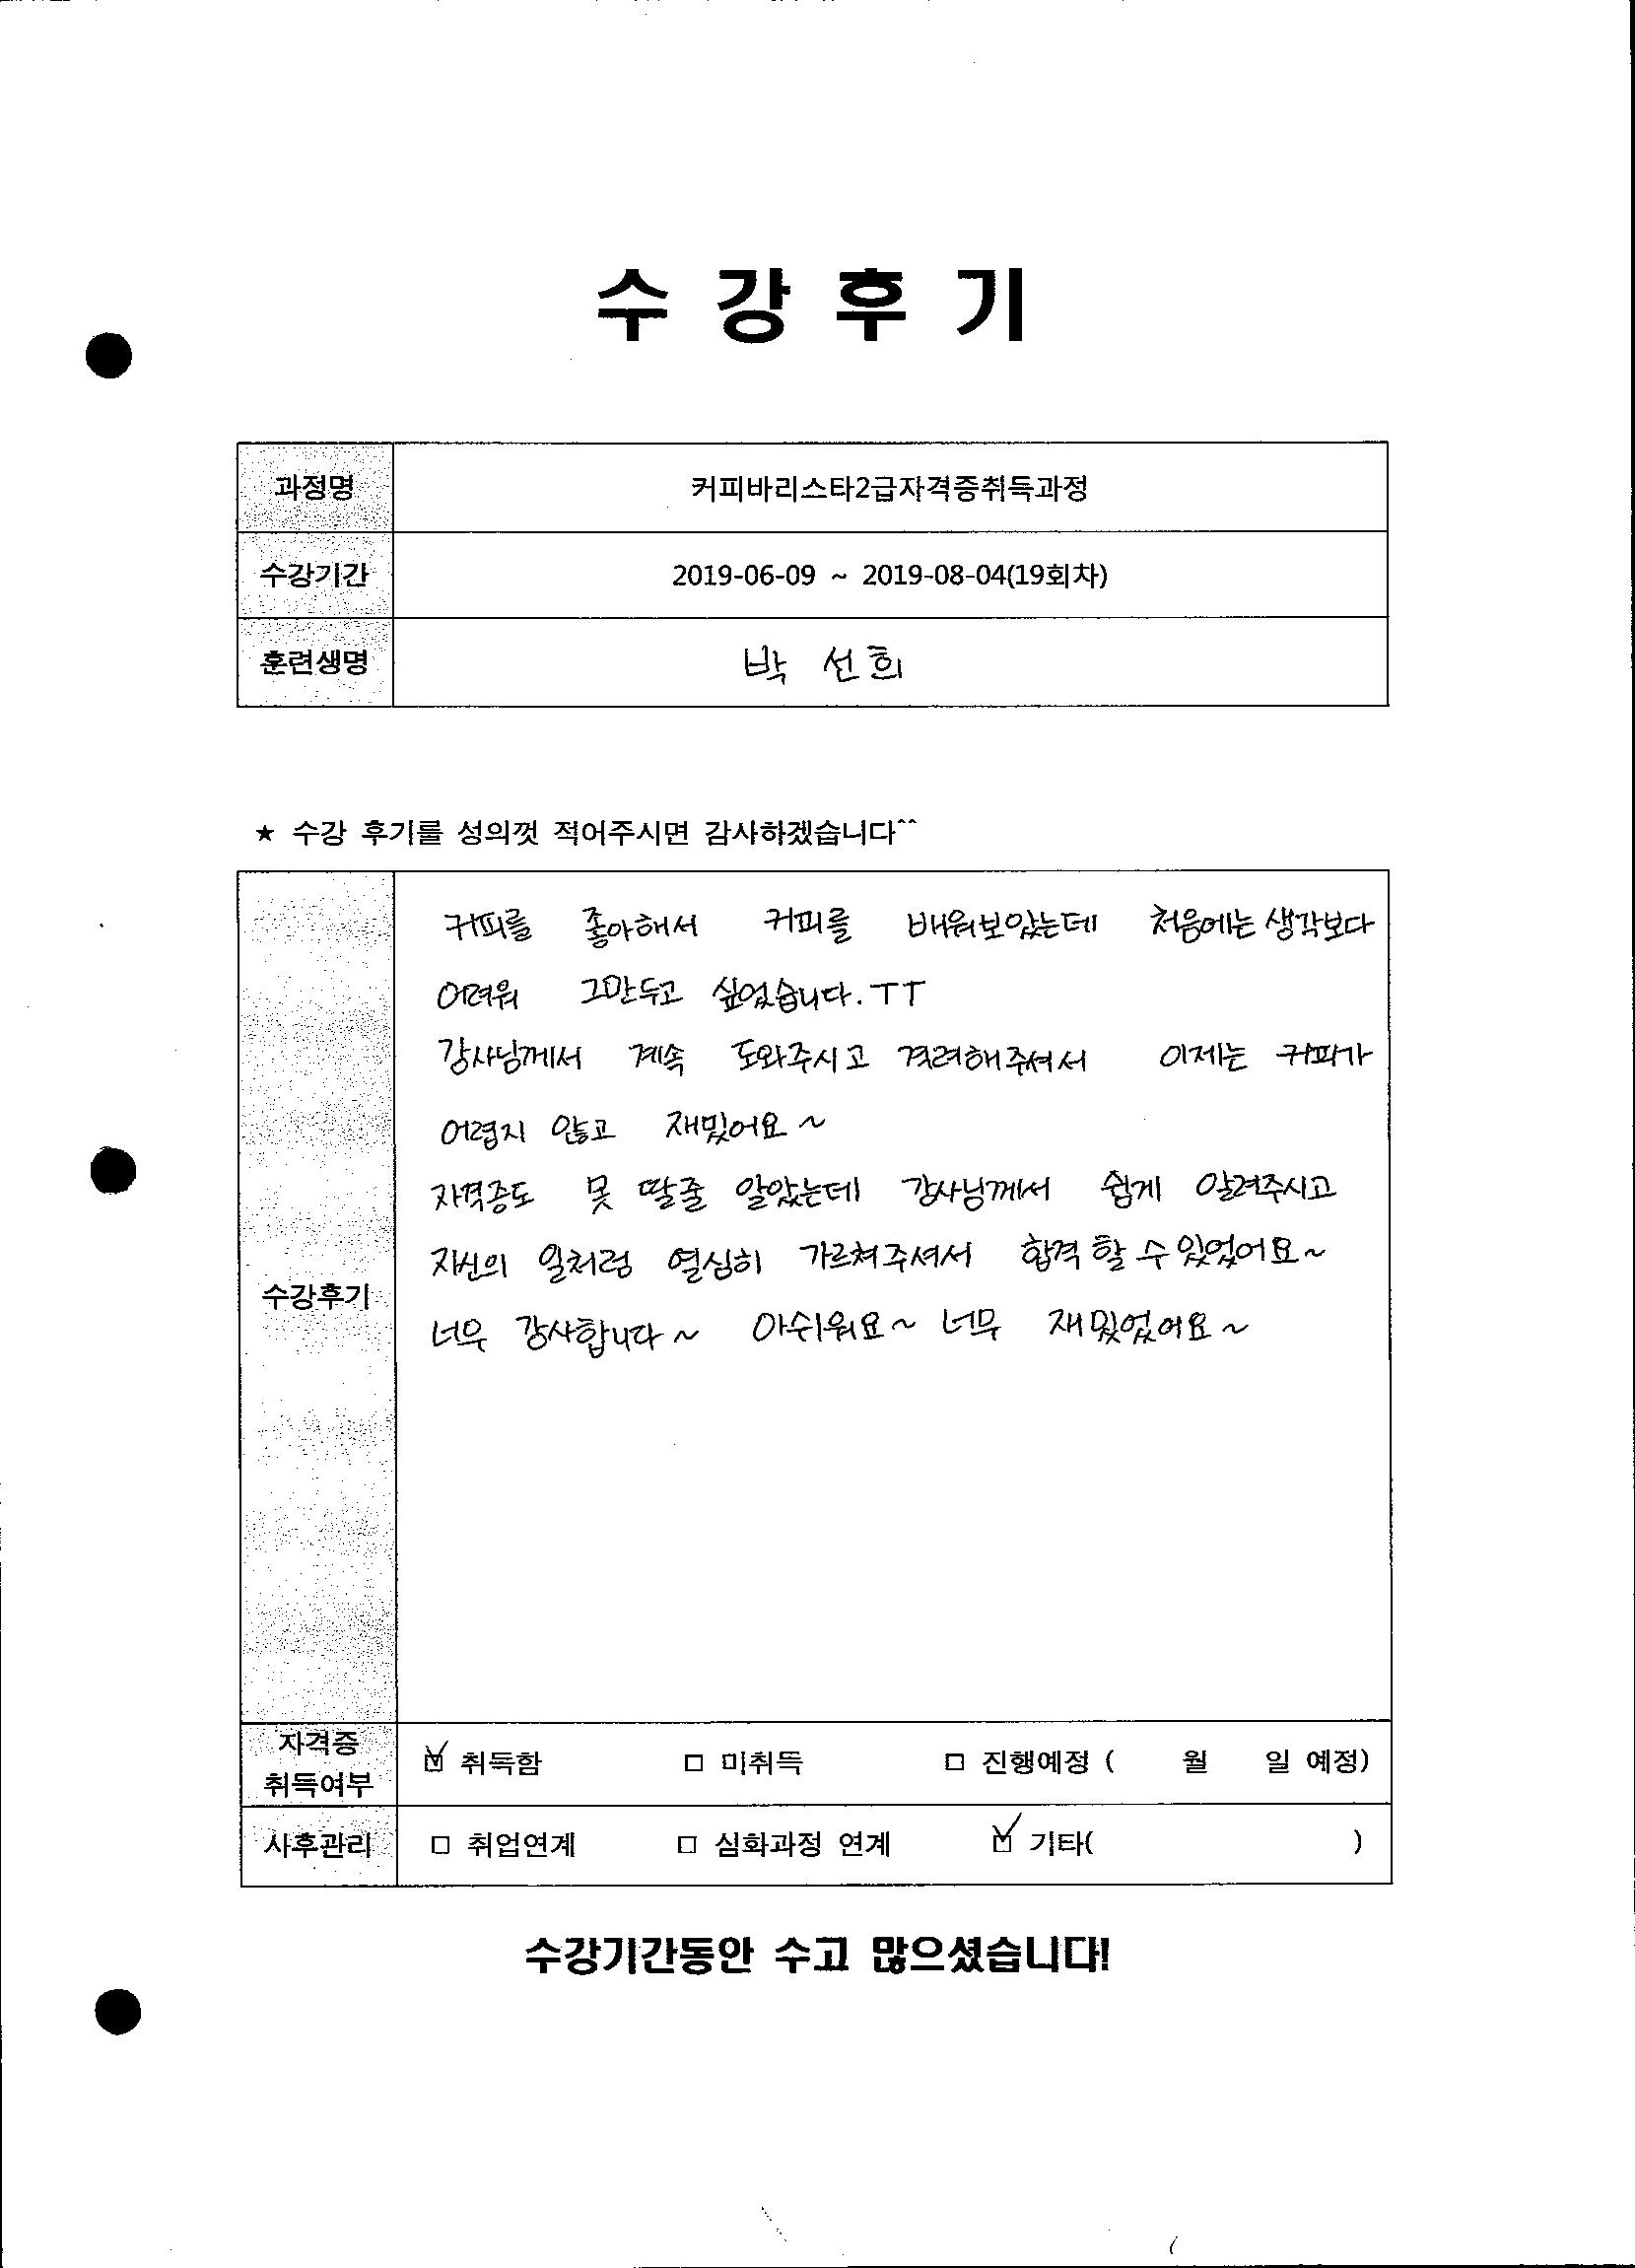 수 강 후 기
과정명 커피바리스타2급자격증취득과정
수강기간 2019-06-09 ~ 2019-08-04(19회차)
훈련생명 박 선희
★ 수강 후기를 성의껏 적어주시면 감사하겠습니다^^
커피를 좋아해서 커피를 배워보았는데 처음에는 생각보다
어려워 그만두고 싶었습니다.TT
강사님께서 계속 도와주시고 격려해주셔서 이제는 커피가
어렵지 않고 재밌어요~
자격증도 못 딸줄 알았는데 강사님께서 쉽게 알려주시고
자신의 일처럼 열심히 가르쳐주셔서 합격 할 수 있었어요~
수강후기
너무 감사합니다~ 아쉬워요~ 너무 재밌었어요~
자격증
취득여부
☑ 취득함 □ 미취득 □ 진행예정 ( 월 일 예정)
사후관리 □ 취업연계 □ 심화과정 연계 ☑ 기타( )
수강기간동안 수고 많으셨습니다!